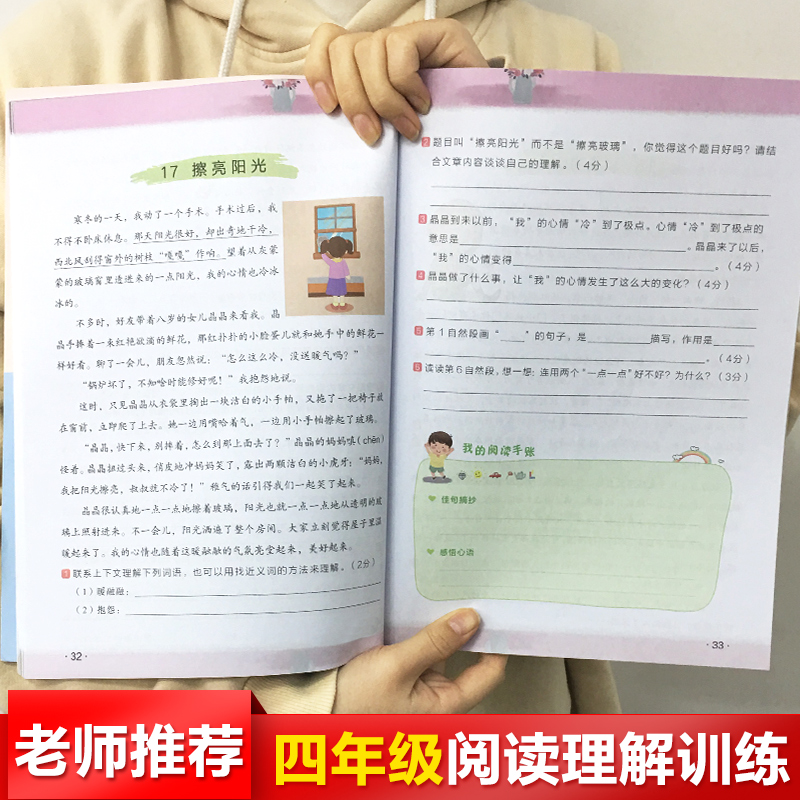 17 擦亮阳光
寒冬的一天，我动了一个手术。手术过后，我
不得不卧床休息。那天阳光很好，却出奇地干冷，
西北风刮得窗外的树枝“嘎嘎”作响。望着从灰蒙
蒙的玻璃窗里透进来的一点阳光，我的心情也冷冰
冰的。
不多时，好友带着八岁的女儿晶晶来看我。晶
晶手捧着一束红艳欲滴的鲜花，那红扑扑的小脸蛋儿就和她手中的鲜花一
样好看。聊了一会儿，朋友忽然说：“怎么这么冷，没送暖气吗？”
“锅炉坏了，不知啥时能修好呢！”我抱怨地说。
这时，只见晶晶从衣袋里掏出一块洁白的小手帕，又拖了一把椅子放
在窗前，立即爬了上去。她一边用嘴哈着气，一边用小手帕擦起了玻璃。
“晶晶，快下来，别摔着，怎么到那上面去了？”晶晶的妈妈嗔(chēn)
怪着。晶晶扭过头来，俏皮地冲妈妈笑了，露出两颗洁白的小虎牙：“妈妈，
我把阳光擦亮，叔叔就不冷了！”稚气的话引得我们一起笑了起来。
晶晶很认真地一点一点地擦着玻璃，阳光也就一点一点地从透明的玻
璃上照射进来。不一会儿，阳光洒遍了整个房间。大家立刻觉得屋子里温
暖起来了。我的心情也随着这暖融融的气氛亮堂起来，美好起来。
1 联系上下文理解下列词语，也可以用找近义词的方法来理解。（2分）
（1）暖融融：
（2）抱怨：
·32·
2 题目叫“擦亮阳光”而不是“擦亮玻璃”，你觉得这个题目好吗？请结
合文章内容谈谈自己的理解。（4分）
3 晶晶到来以前，“我”的心情“冷”到了极点。心情“冷”到了极点的
意思是____。晶晶来了以后，
“我”的心情变得____。（4分）
4 晶晶做了什么事，让“我”的心情发生了这么大的变化？（4分）
5 第1自然段画“____”的句子，是____描写，作用是____
。（4分）
6 读读第6自然段，想一想：连用两个“一点一点”好不好？为什么？（3分）
我的阅读手账
佳句摘抄
感悟心语
·33·
老师推荐
四年级阅读理解训练